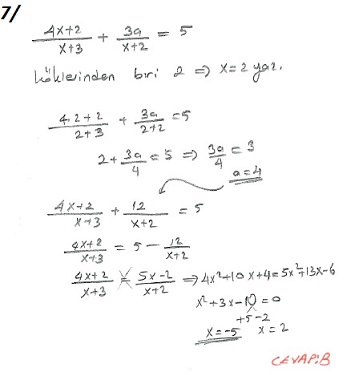 7/
4x+2/x+3 + 3a/x+2 = 5
köklerinden biri 2 => x=2 yaz.
4.2+2/2+3 + 3a/2+2 = 5
2 + 3a/4 = 5 => 3a/4 = 3
a=4
4x+2/x+3 + 12/x+2 = 5
4x+2/x+3 = 5 - 12/x+2
4x+2/x+3 = 5x-2/x+2 => 4x²+10x+4=5x²+13x-6
x²+3x-10=0
+5-2
x=-5 x=2
CEVAP:B